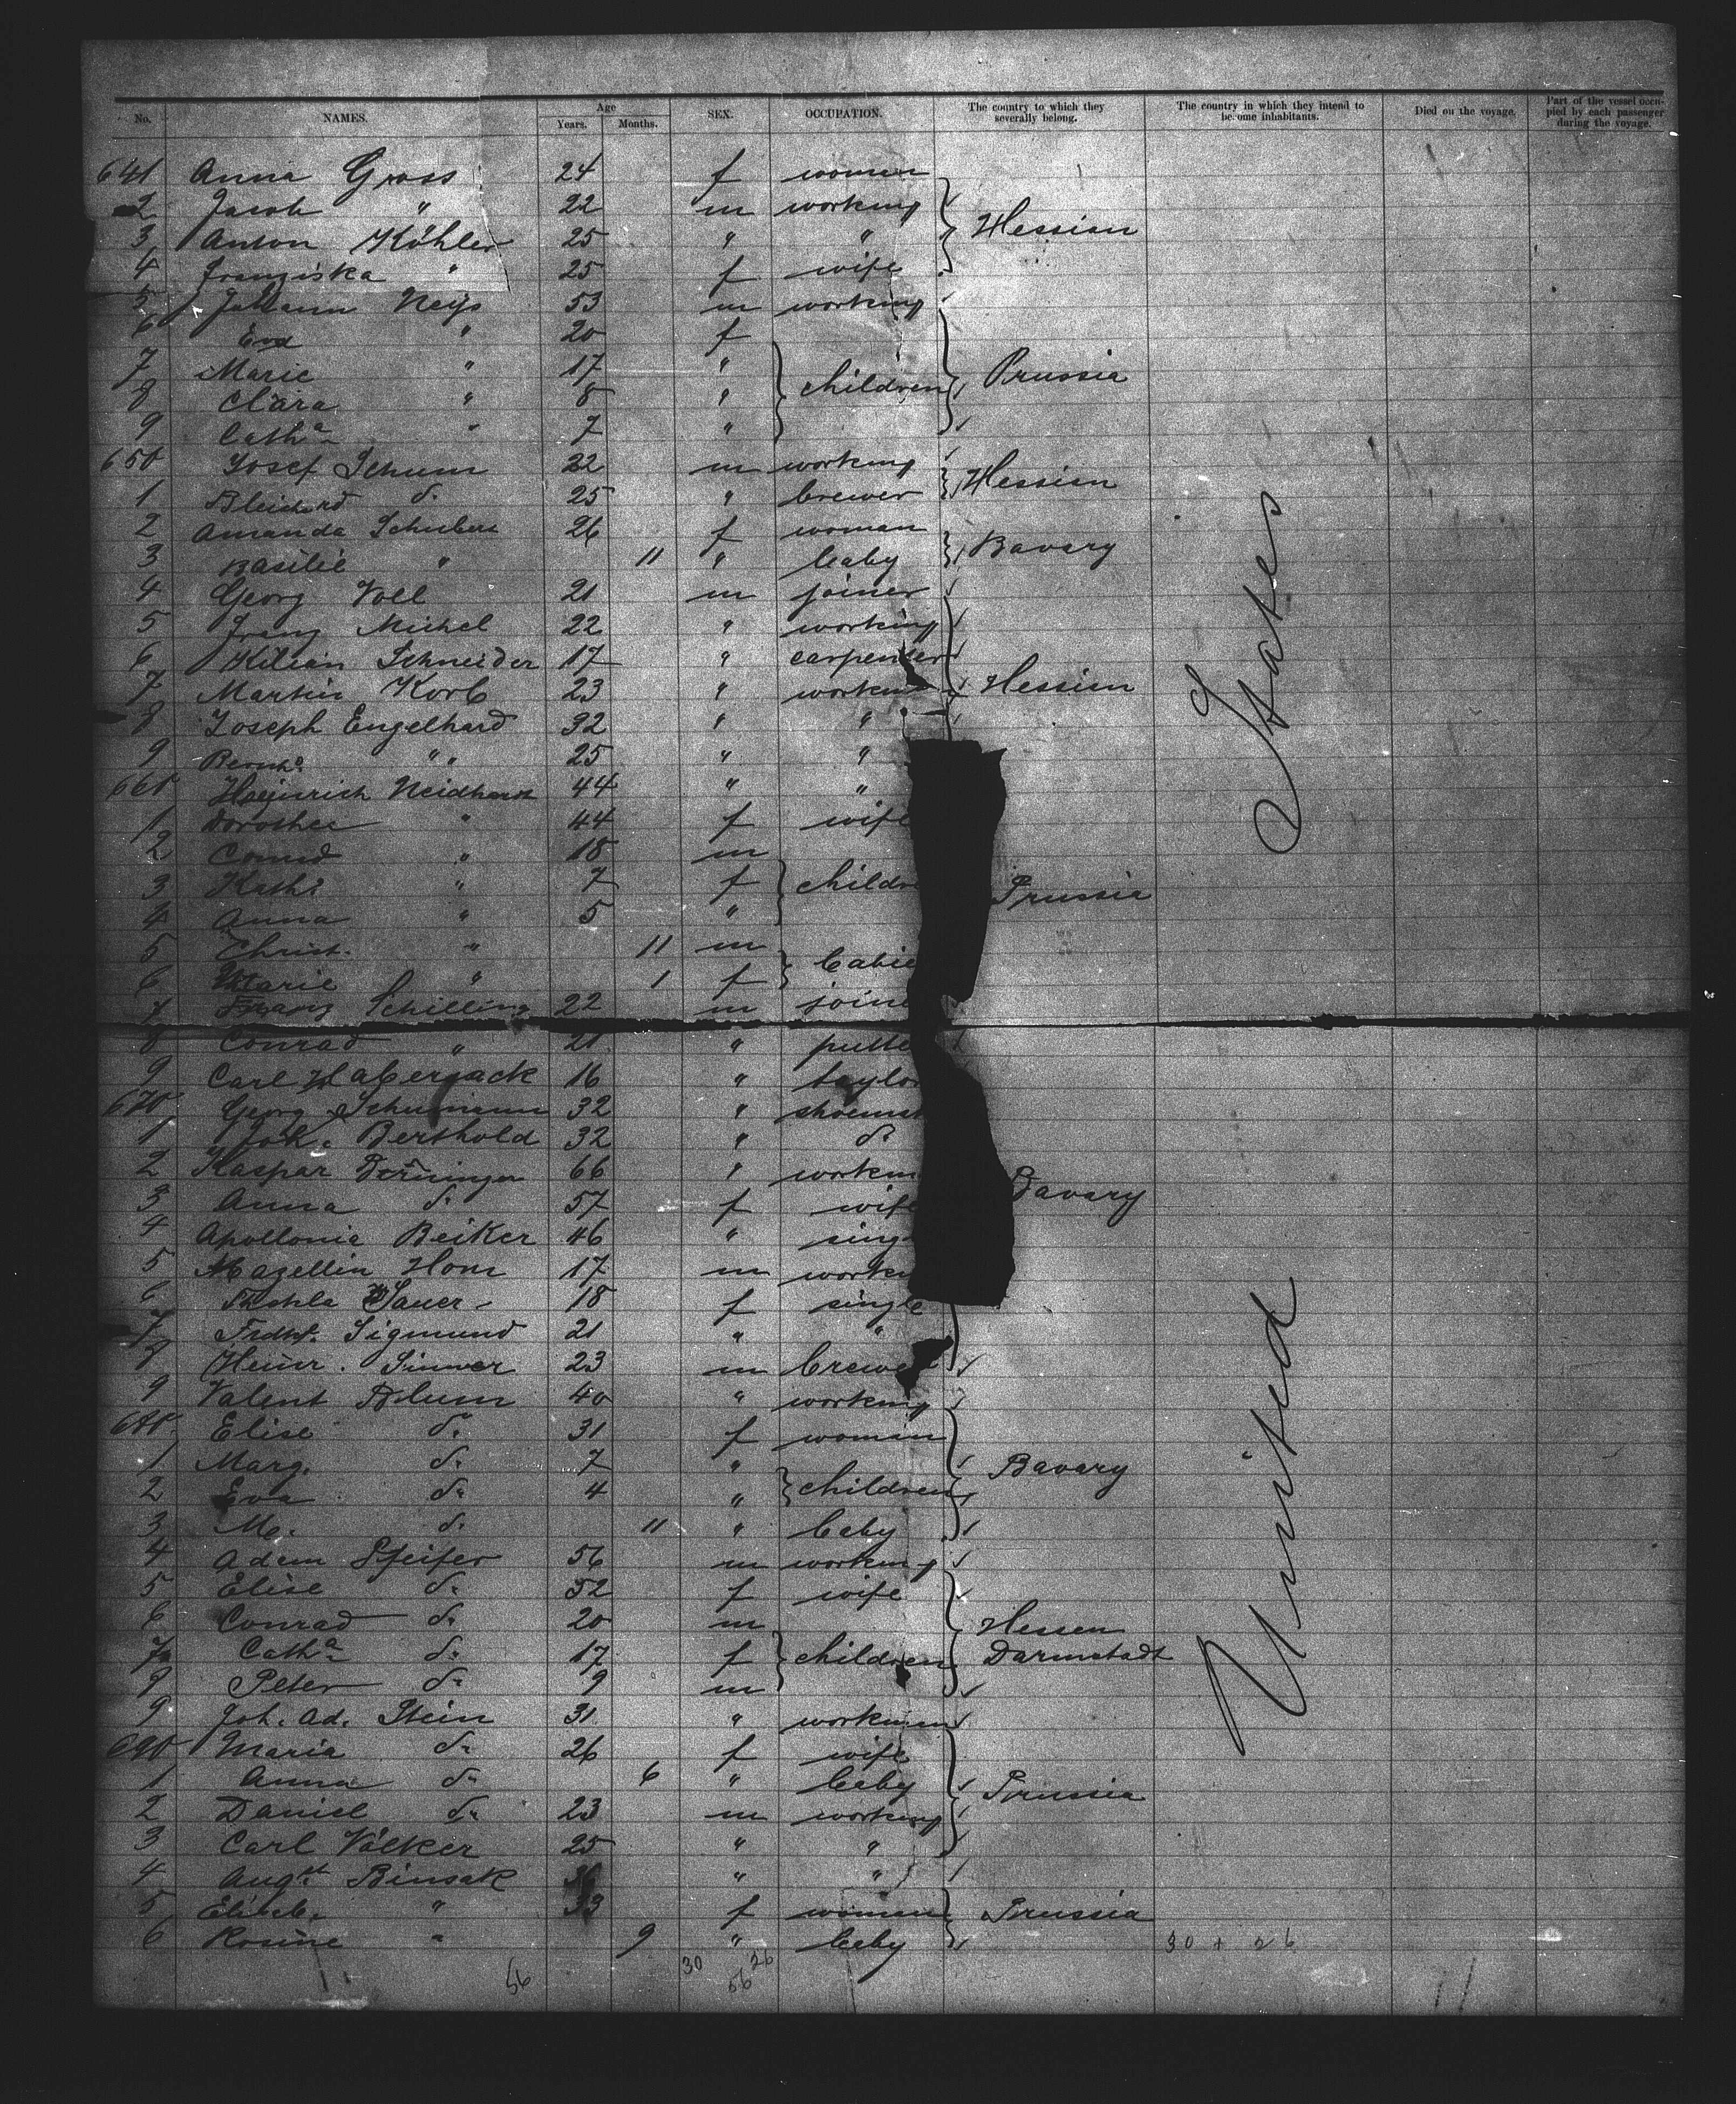 No. NAMES. Age Years. Months. SEX. OCCUPATION. The country to which they severally belong. The country in which they intend to become inhabitants. Died on the voyage. Part of the vessel occupied by each passenger during the voyage.
641 Anna Gross 24 f woman
2 Jacob " 22 m working
3 Anton Köhler 25 " " Hessian
4 Franziska " 25 f wife
5 Johann Neys 53 m working
6 Eva " 20 f
7 Marie " 17 " children Prussia
8 Clara " 8 "
9 Catha " 7 "
650 Josef Schum 22 m working Hessian
1 do 25 " brewer
2 Amanda Schubert 26 f woman Bavary
3 Basilie " 11 " baby
4 Georg Voll 21 m joiner
5 Franz Michel 22 " working
6 Kilian Schneider 17 " carpenter
7 Martin Korb 23 " working Hessian
8 Joseph Engelhard 32 " "
9 Bernhd " 25 " "
660 Heinrich Neidhardt 44 " "
1 Dorothee " 44 f wife
2 Conrad " 18 m
3 Kath. " 7 f childre Prussia
4 Anna " 5 "
5 Christ. " 11 m babie
6 Marie " 1 f
7 Franz Schilling 22 m joine
8 Conrad " 21 "
9 Carl Haberjack 16 " taylor
670 Georg Schumann 32 " shoema
1 Joh. Berthold 32 " do
2 Kaspar 66 " workin
3 Anna do 57 f wife Bavary
4 Apollonia Beiker 46 " sing
5 Hom 17 m workin
6 Thekla Sauer 18 f single
7 Sigmund 21 " "
8 Heinr. 23 m brewe
9 Valent Blum 40 " working
680 Elise do 31 f woman
1 Marg. do 7 " children Bavary
2 Eva do 4 "
3 Ma. do 11 " baby
4 Adam Pfeifer 56 m working
5 Elise do 52 f wife
6 Conrad do 20 m Hessen
7 Catha do 17 f children Darmstadt
8 Peter do 9 m
9 Joh. Ad. Stein 31 " workmen
690 Maria do 26 f wife
1 Anna do 6 " baby Prussia
2 Daniel do 23 m working
3 Carl Völker 25 " "
4 Augst Binsak " "
5 Elisab. " 33 f woman Prussia
6 Rosine " 9 " baby
United States
56 30 26 56 30 + 26